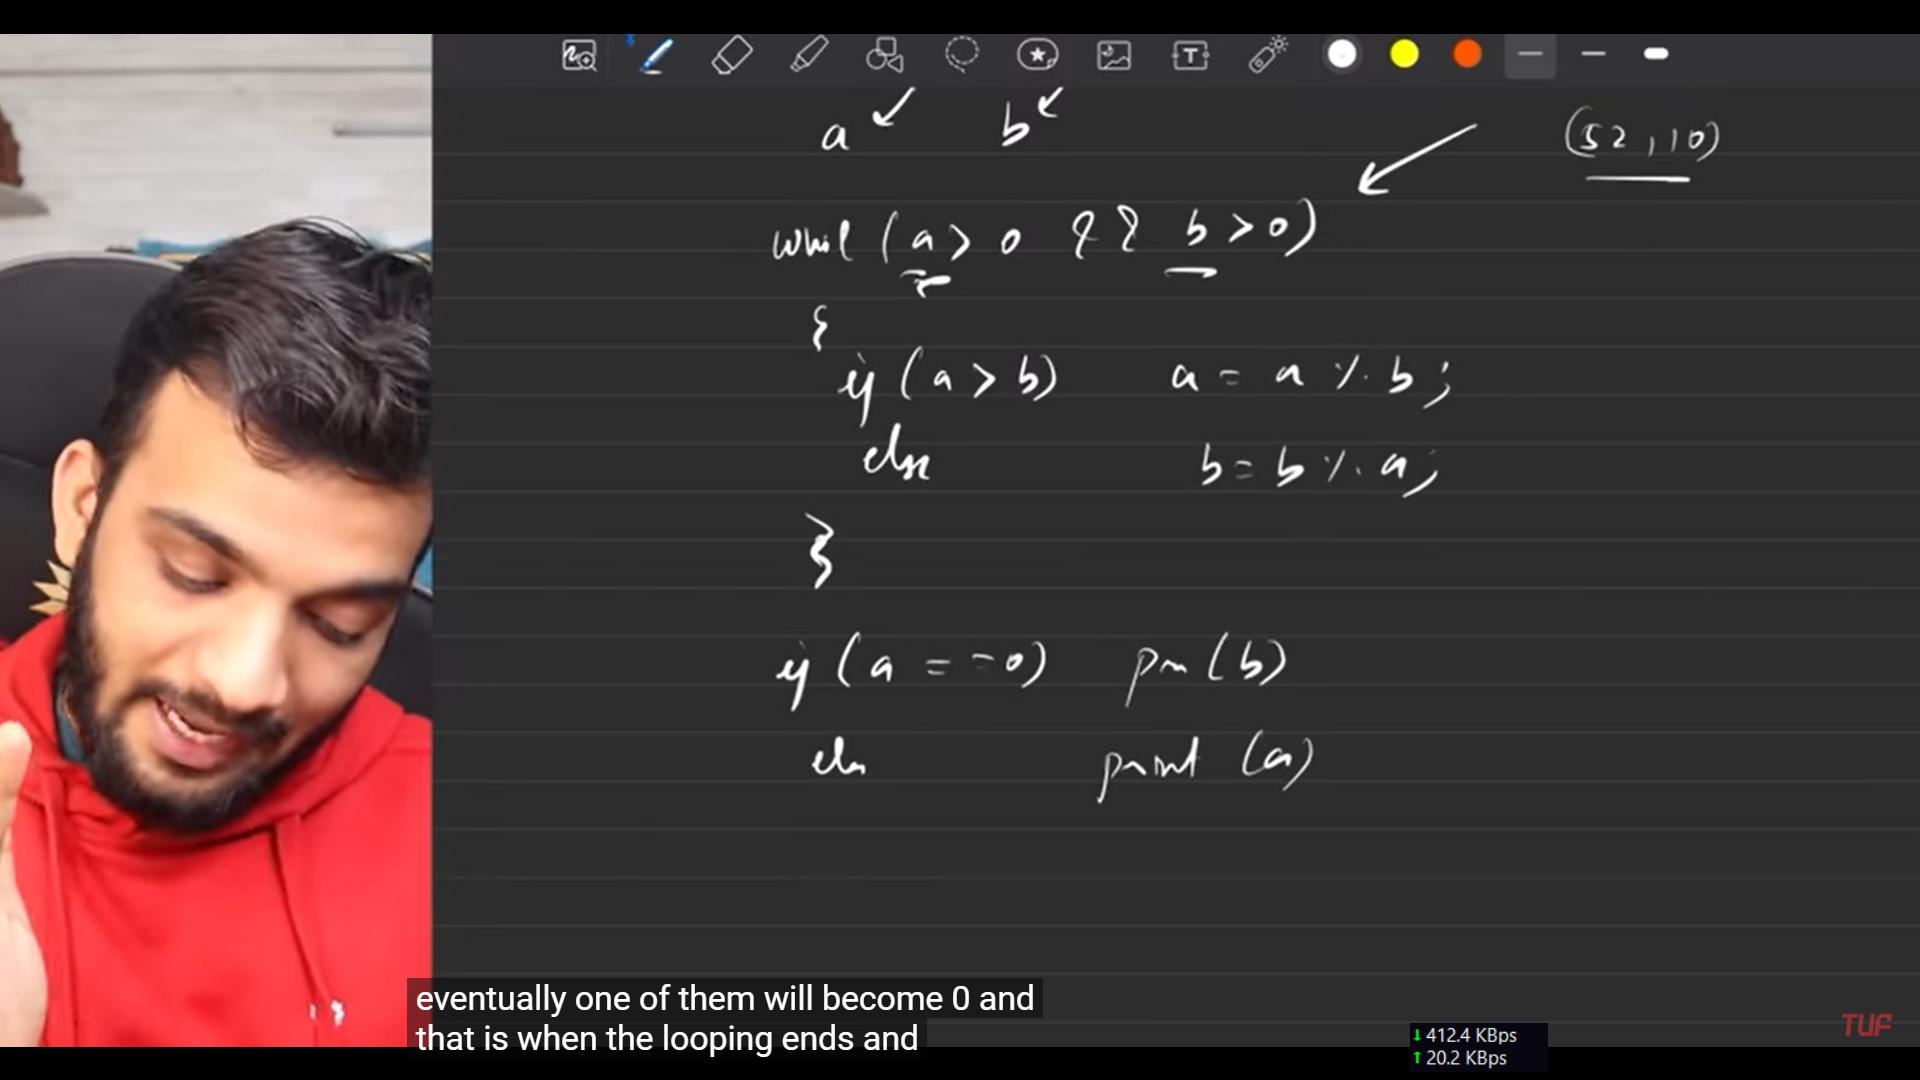 a b
(52, 10)
whil (a > 0 && b > 0)
{
if (a > b) a = a % b;
else b = b % a;
}
if (a == 0) prn (b)
els print (a)
eventually one of them will become 0 and
that is when the looping ends and
TUF
↓ 412.4 KBps
↑ 20.2 KBps